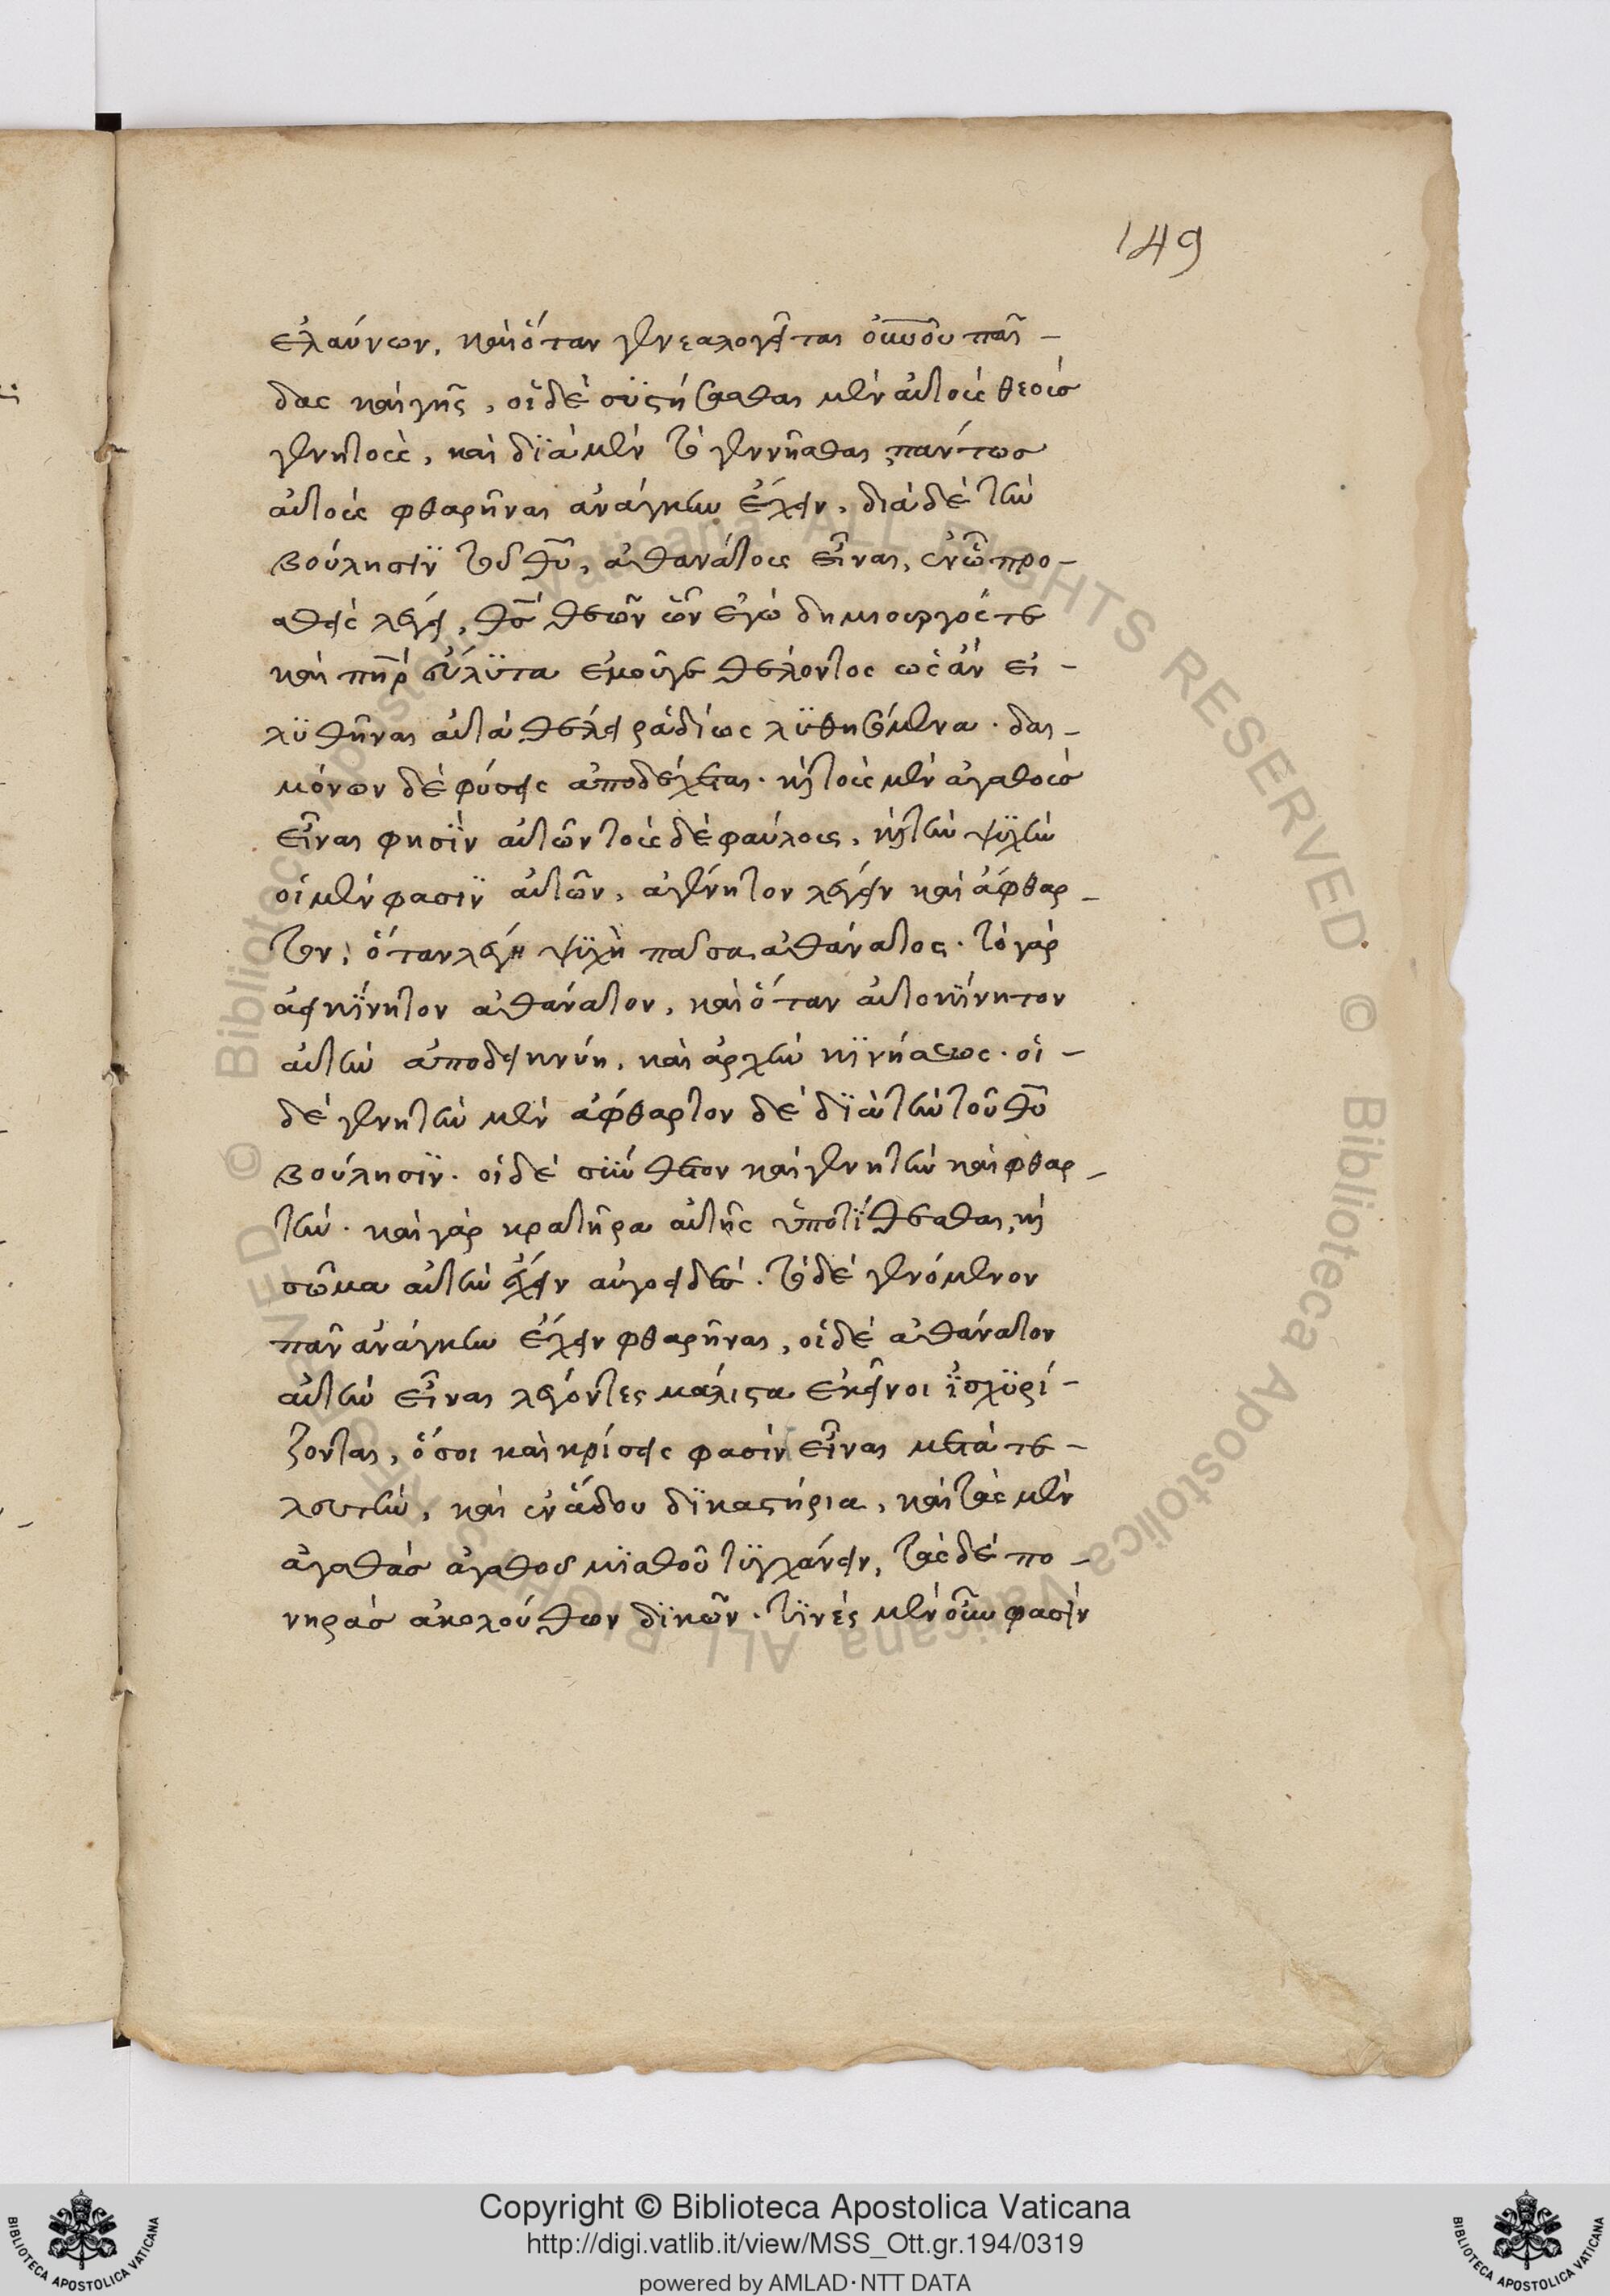 149
ἐλαύνων. καὶ ὅταν γενεαλογῆται οὐνοῦ παῖ-
δας καὶ γῆς, οἱ δὲ συστήσασθαι μὲν αὐτοὺς θεοὺσ
γενητοὺς, καὶ διὰ μὲν τὸ γεννῆσθαι παντωσ
αὐτοὺς φθαρῆναι ἀνάγκην ἔχειν, διὰ δὲ τὴν
βούλησιν τοῦ θῦ, ἀθανάτους εἶναι, ἐν ὧ προ-
σθεὶς λέγει, θσ θεῶν ὧν ἐγὼ δημιουργός τε
καὶ πηρ ἄλυτα ἐμοῦγε θέλοντος ὡς ἂν εἰ-
λυθῆναι αὐτὰ θέλει ῥαδίως λυθησόμενα. δαι-
μόνων δὲ φύσεις ἀποδέχεται. κὶ τοὺς μὲν ἀγαθοὺσ
εἶναι φησὶν αὐτῶν τοὺς δὲ φαύλους, κὶ τὴν ψυχὴν
οἱ μὲν φασὶν αὐτῶν, ἀγένητον λέγειν καὶ ἄφθαρ-
τον, ὅταν λέγη ψυχὴ πᾶσα ἀθάνατος. τὸ γὰρ
ἀεικίνητον ἀθάνατον, καὶ ὅταν αὐτοκίνητον
αὐτὴν ἀποδεικνύη, καὶ ἀρχὴν κινήσεως. οἱ-
δὲ γενητὴν μὲν ἄφθαρτον δὲ διὰ τὴν τοῦ θῦ
βούλησιν. οἱ δὲ σύνθετον καὶ γενητὴν καὶ φθαρ-
τήν. καὶ γὰρ κρατῆρα αὐτῆς ὑποτίθεσθαι, κὶ
σῶμα αὐτὴν ἔχειν αὐγοειδές. τὸ δὲ γενόμενον
πᾶν ἀνάγκην ἔχειν φθαρῆναι, οἱ δὲ ἀθάνατον
αὐτὴν εἶναι λέγοντες μάλιστα ἐκεῖνοι ἰσχυρί-
ζονται, ὅσοι καὶ κρίσεις φασὶν εἶναι μετὰ τε-
λευτὴν, καὶ ἐν ἅδου δικαστήρια, καὶ τὰς μὲν
ἀγαθὰσ ἀγαθοῦ μισθοῦ τυγχάνειν, τὰς δὲ πο-
νηρὰσ ἀκολούθων δικῶν. τινὲς μὲν οὖν φασὶν
Copyright © Biblioteca Apostolica Vaticana
http://digi.vatlib.it/view/MSS_Ott.gr.194/0319
powered by AMLAD·NTT DATA
BIBLIOTECA APOSTOLICA VATICANA
BIBLIOTECA APOSTOLICA VATICANA
© Biblioteca Apostolica Vaticana ALL RIGHTS RESERVED
© Biblioteca Apostolica Vaticana ALL RIGHTS RESERVED